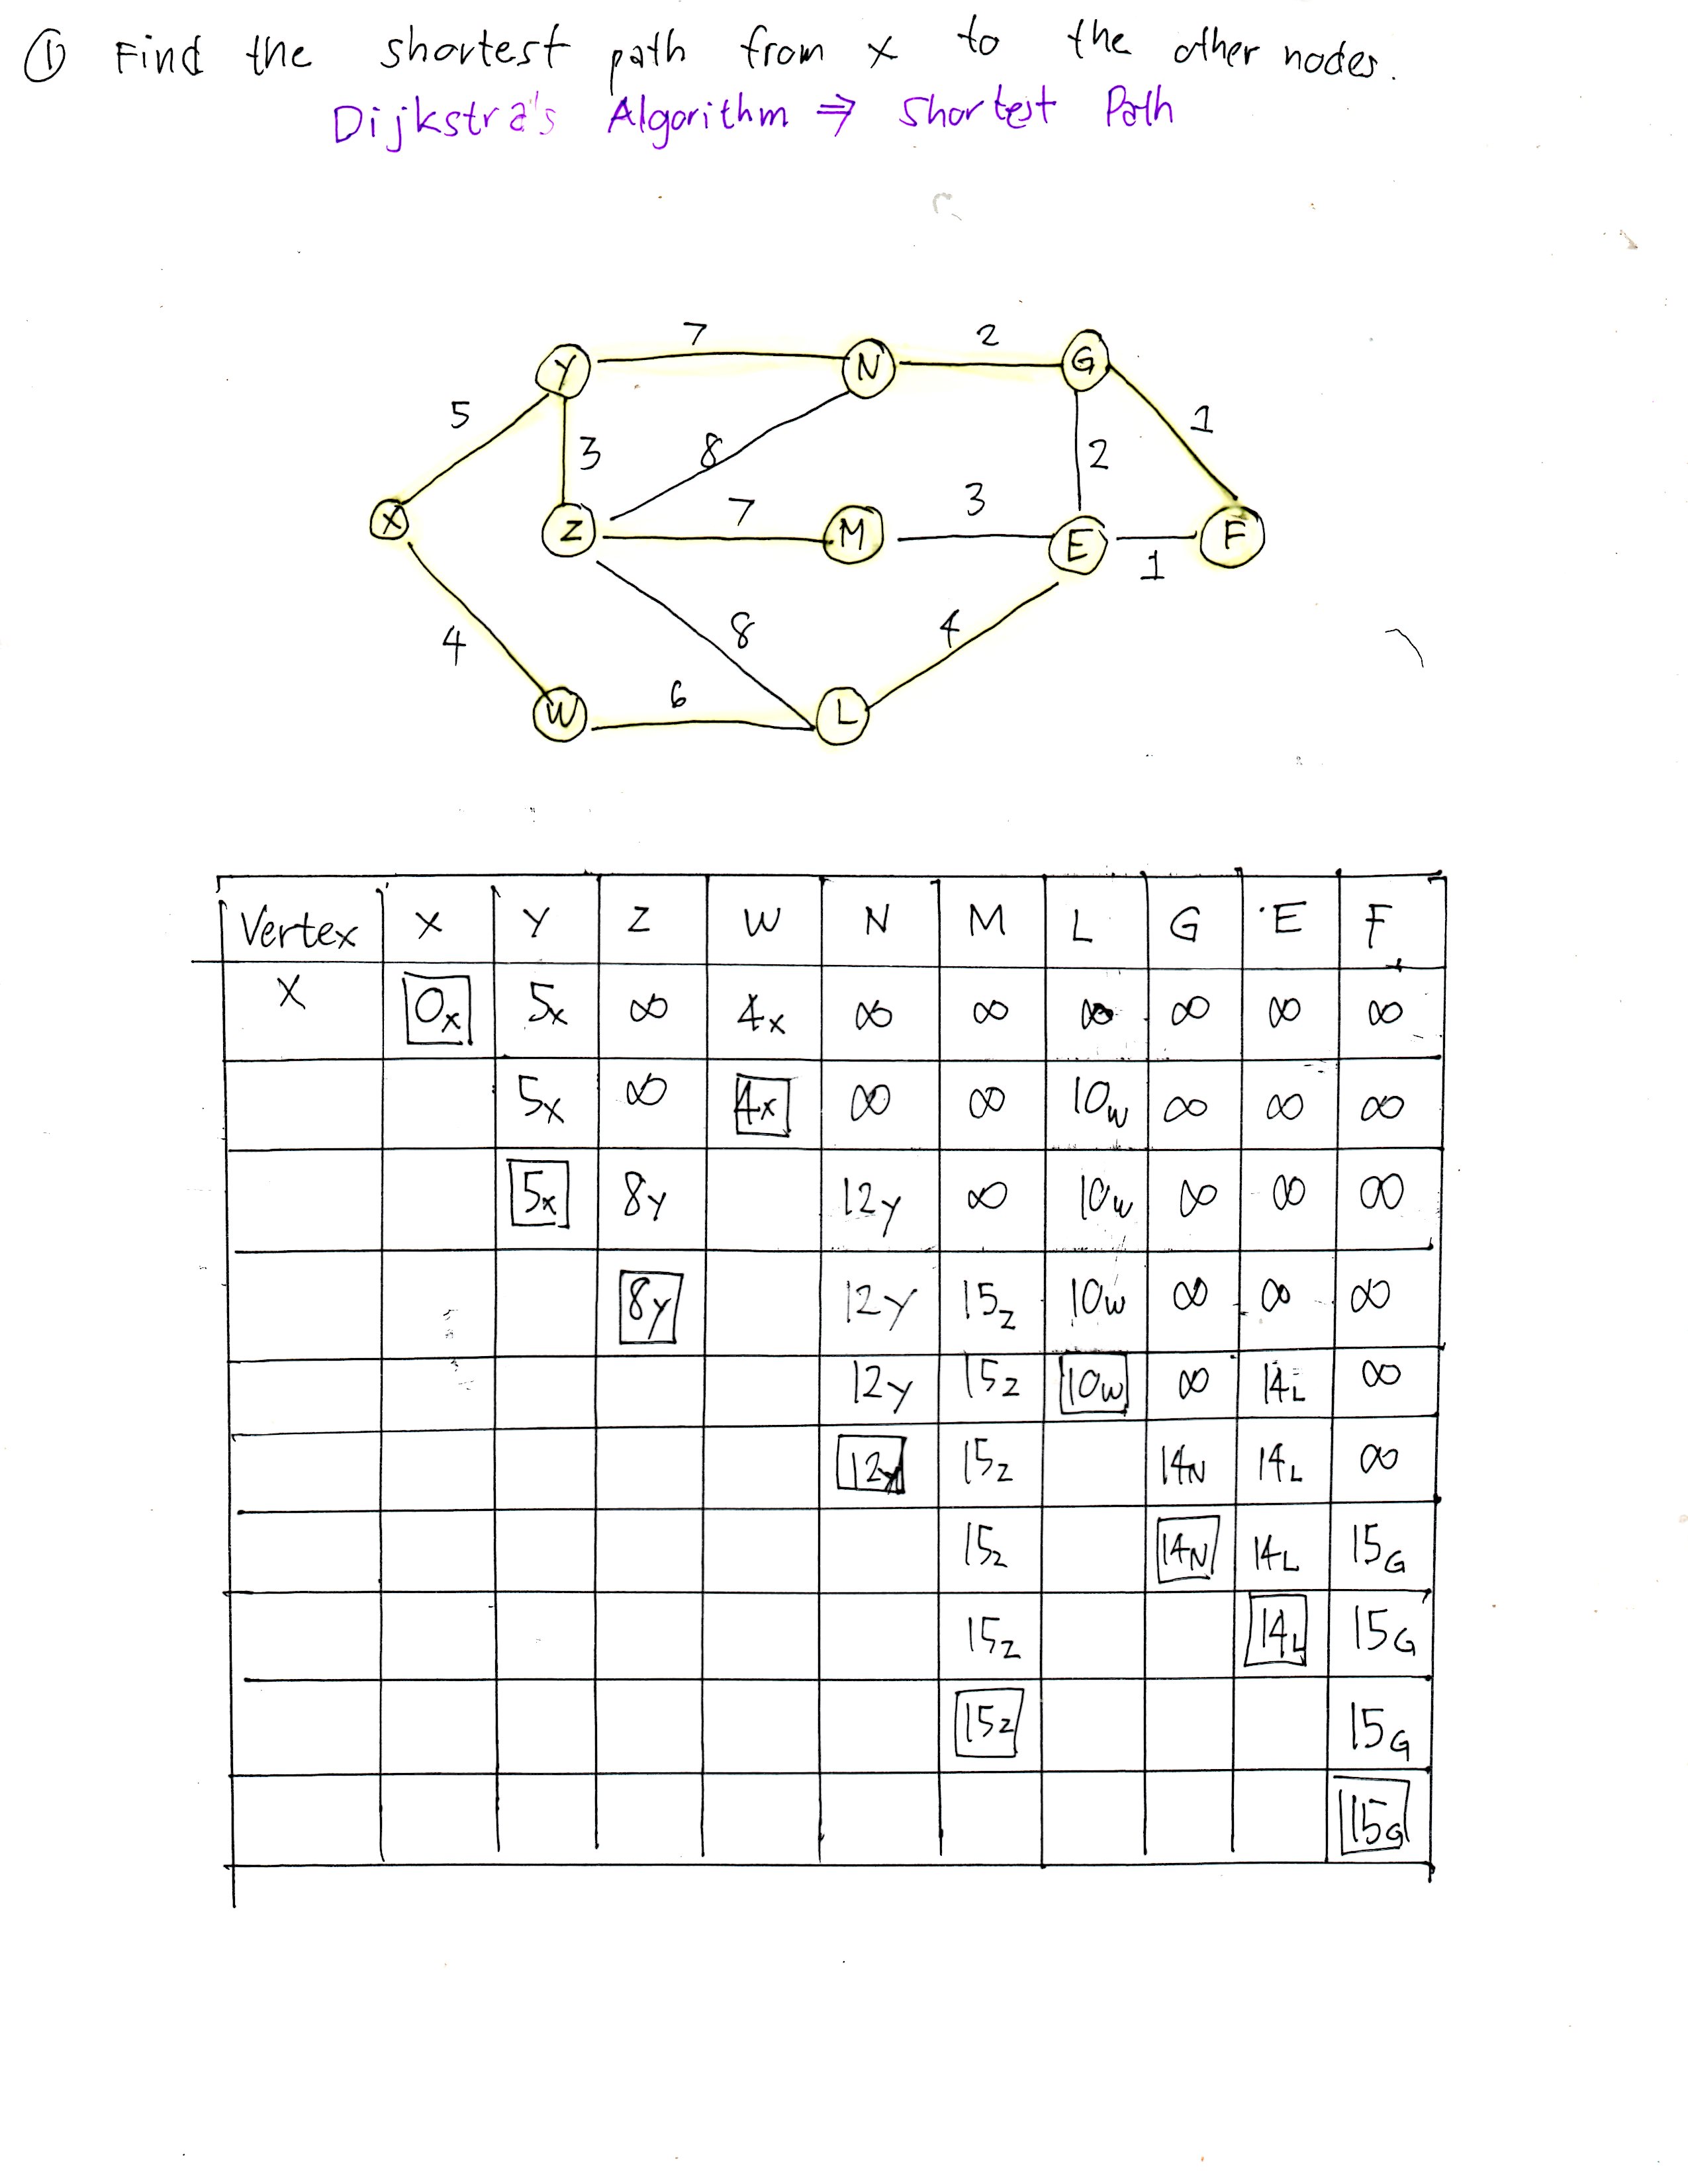 ① Find the shortest path from x to the other nodes.
Dijkstra's Algorithm ⇒ Shortest Path
7 2
Y N G
5 3 8 1
2
7 3
X Z M E F
1
8 4
4
6
W L
Vertex X Y Z W N M L G E F
X 0x 5x ∞ 4x ∞ ∞ ∞ ∞ ∞ ∞
5x ∞ 4x ∞ ∞ 10w ∞ ∞ ∞
5x 8Y 12Y ∞ 10w ∞ ∞ ∞
8Y 12Y 15z 10w ∞ ∞ ∞
12Y 15z 10w ∞ 14L ∞
12Y 15z 14N 14L ∞
15z 14N 14L 15G
15z 14L 15G
15z 15G
15G